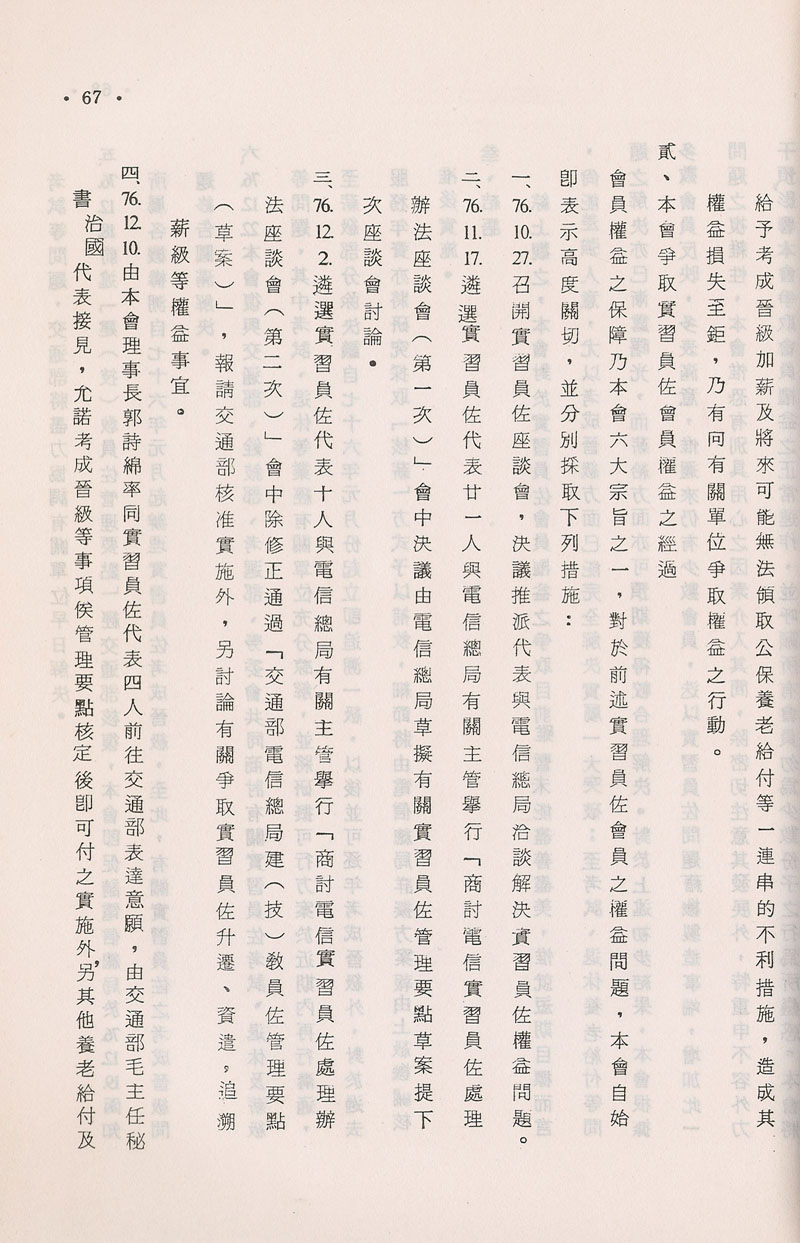 • 67 •
給予考成晉級加薪及將來可能無法領取公保養老給付等一連串的不利措施，造成其
權益損失至鉅，乃有向有關單位爭取權益之行動。
貳、本會爭取實習員佐會員權益之經過
會員權益之保障乃本會六大宗旨之一，對於前述實習員佐會員之權益問題，本會自始
卽表示高度關切，並分別採取下列措施：
一、76.10.27.召開實習員佐座談會，決議推派代表與電信總局洽談解決實習員佐權益問題。
二、76.11.17.遴選實習員佐代表廿一人與電信總局有關主管舉行「商討電信實習員佐處理
辦法座談會（第一次）」會中決議由電信總局草擬有關實習員佐管理要點草案提下
次座談會討論。
三、76.12.2.遴選實習員佐代表十人與電信總局有關主管舉行「商討電信實習員佐處理辦
法座談會（第二次）」會中除修正通過「交通部電信總局建（技）教員佐管理要點
（草案）」，報請交通部核准實施外，另討論有關爭取實習員佐升遷、資遣，追溯
薪級等權益事宜。
四、76.12.10.由本會理事長郭詩綿率同實習員佐代表四人前往交通部表達意願，由交通部毛主任秘
書治國代表接見，允諾考成晉級等事項俟管理要點核定後卽可付之實施外，另其他養老給付及